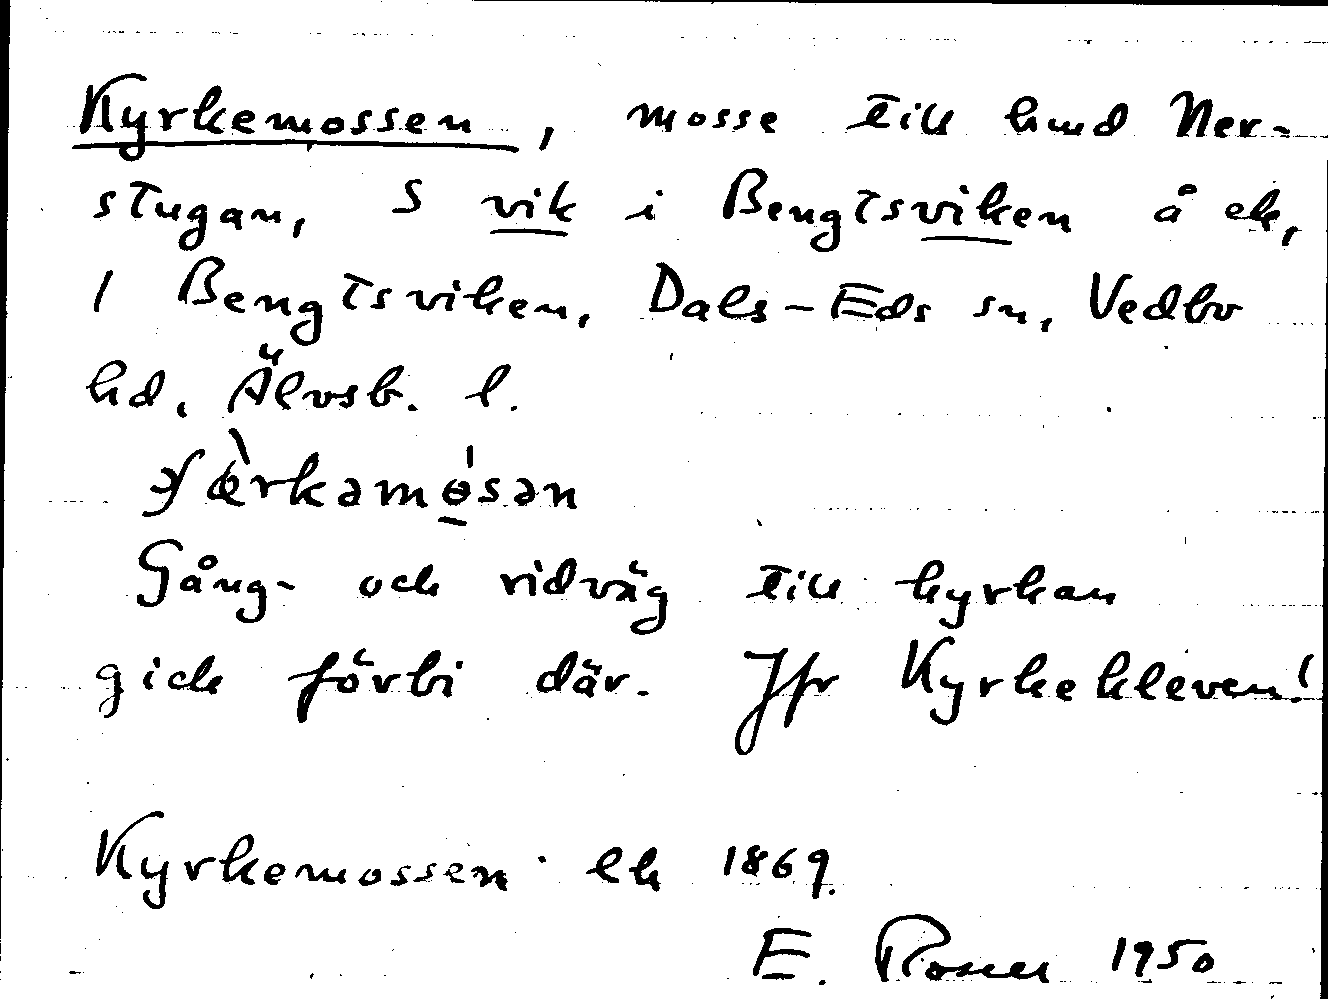 Kyrkemossen, mosse till hmd Ner-
stugan, S vik i Bengtsviken å ek,
1 Bengtsviken, Dals-Eds sn, Vedbo
hd, Älvsb. l.
Gång- och ridväg till kyrkan
gick förbi där. Jfr Kyrkekleven!
Kyrkemossen ek 1869.
E. Rosell 1950